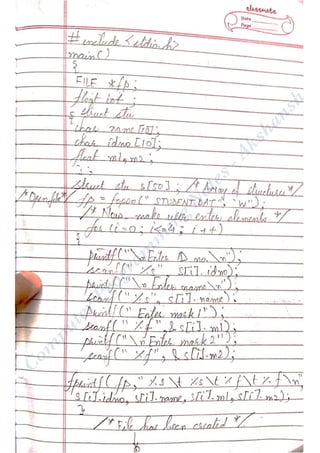 classmate
Date
Page
# include <stdio.h>
main()
{
FILE *fp;
float tot;
{ struct stu
char name[18];
char idno[10];
float m1, m2;
};
struct stu s[50]; /* Array of structures */
/* Open file */ fp = fopen("STUDENT.DAT", "w");
/* Now make user enter elements */
for (i=0; i<=4; i++)
{
printf("\n Enter ID no. \n");
scanf("%s", s[i].idno);
printf("\n Enter name \n");
scanf("%s", s[i].name);
printf("Enter mark 1");
scanf("%f", &s[i].m1);
printf("\n Enter mark 2");
scanf("%f", &s[i].m2);
fprintf(fp, "%s\t %s\t %f\t %f\n"
s[i].idno, s[i].name, s[i].m1, s[i].m2);
}
/* File has been created */
Akshansh